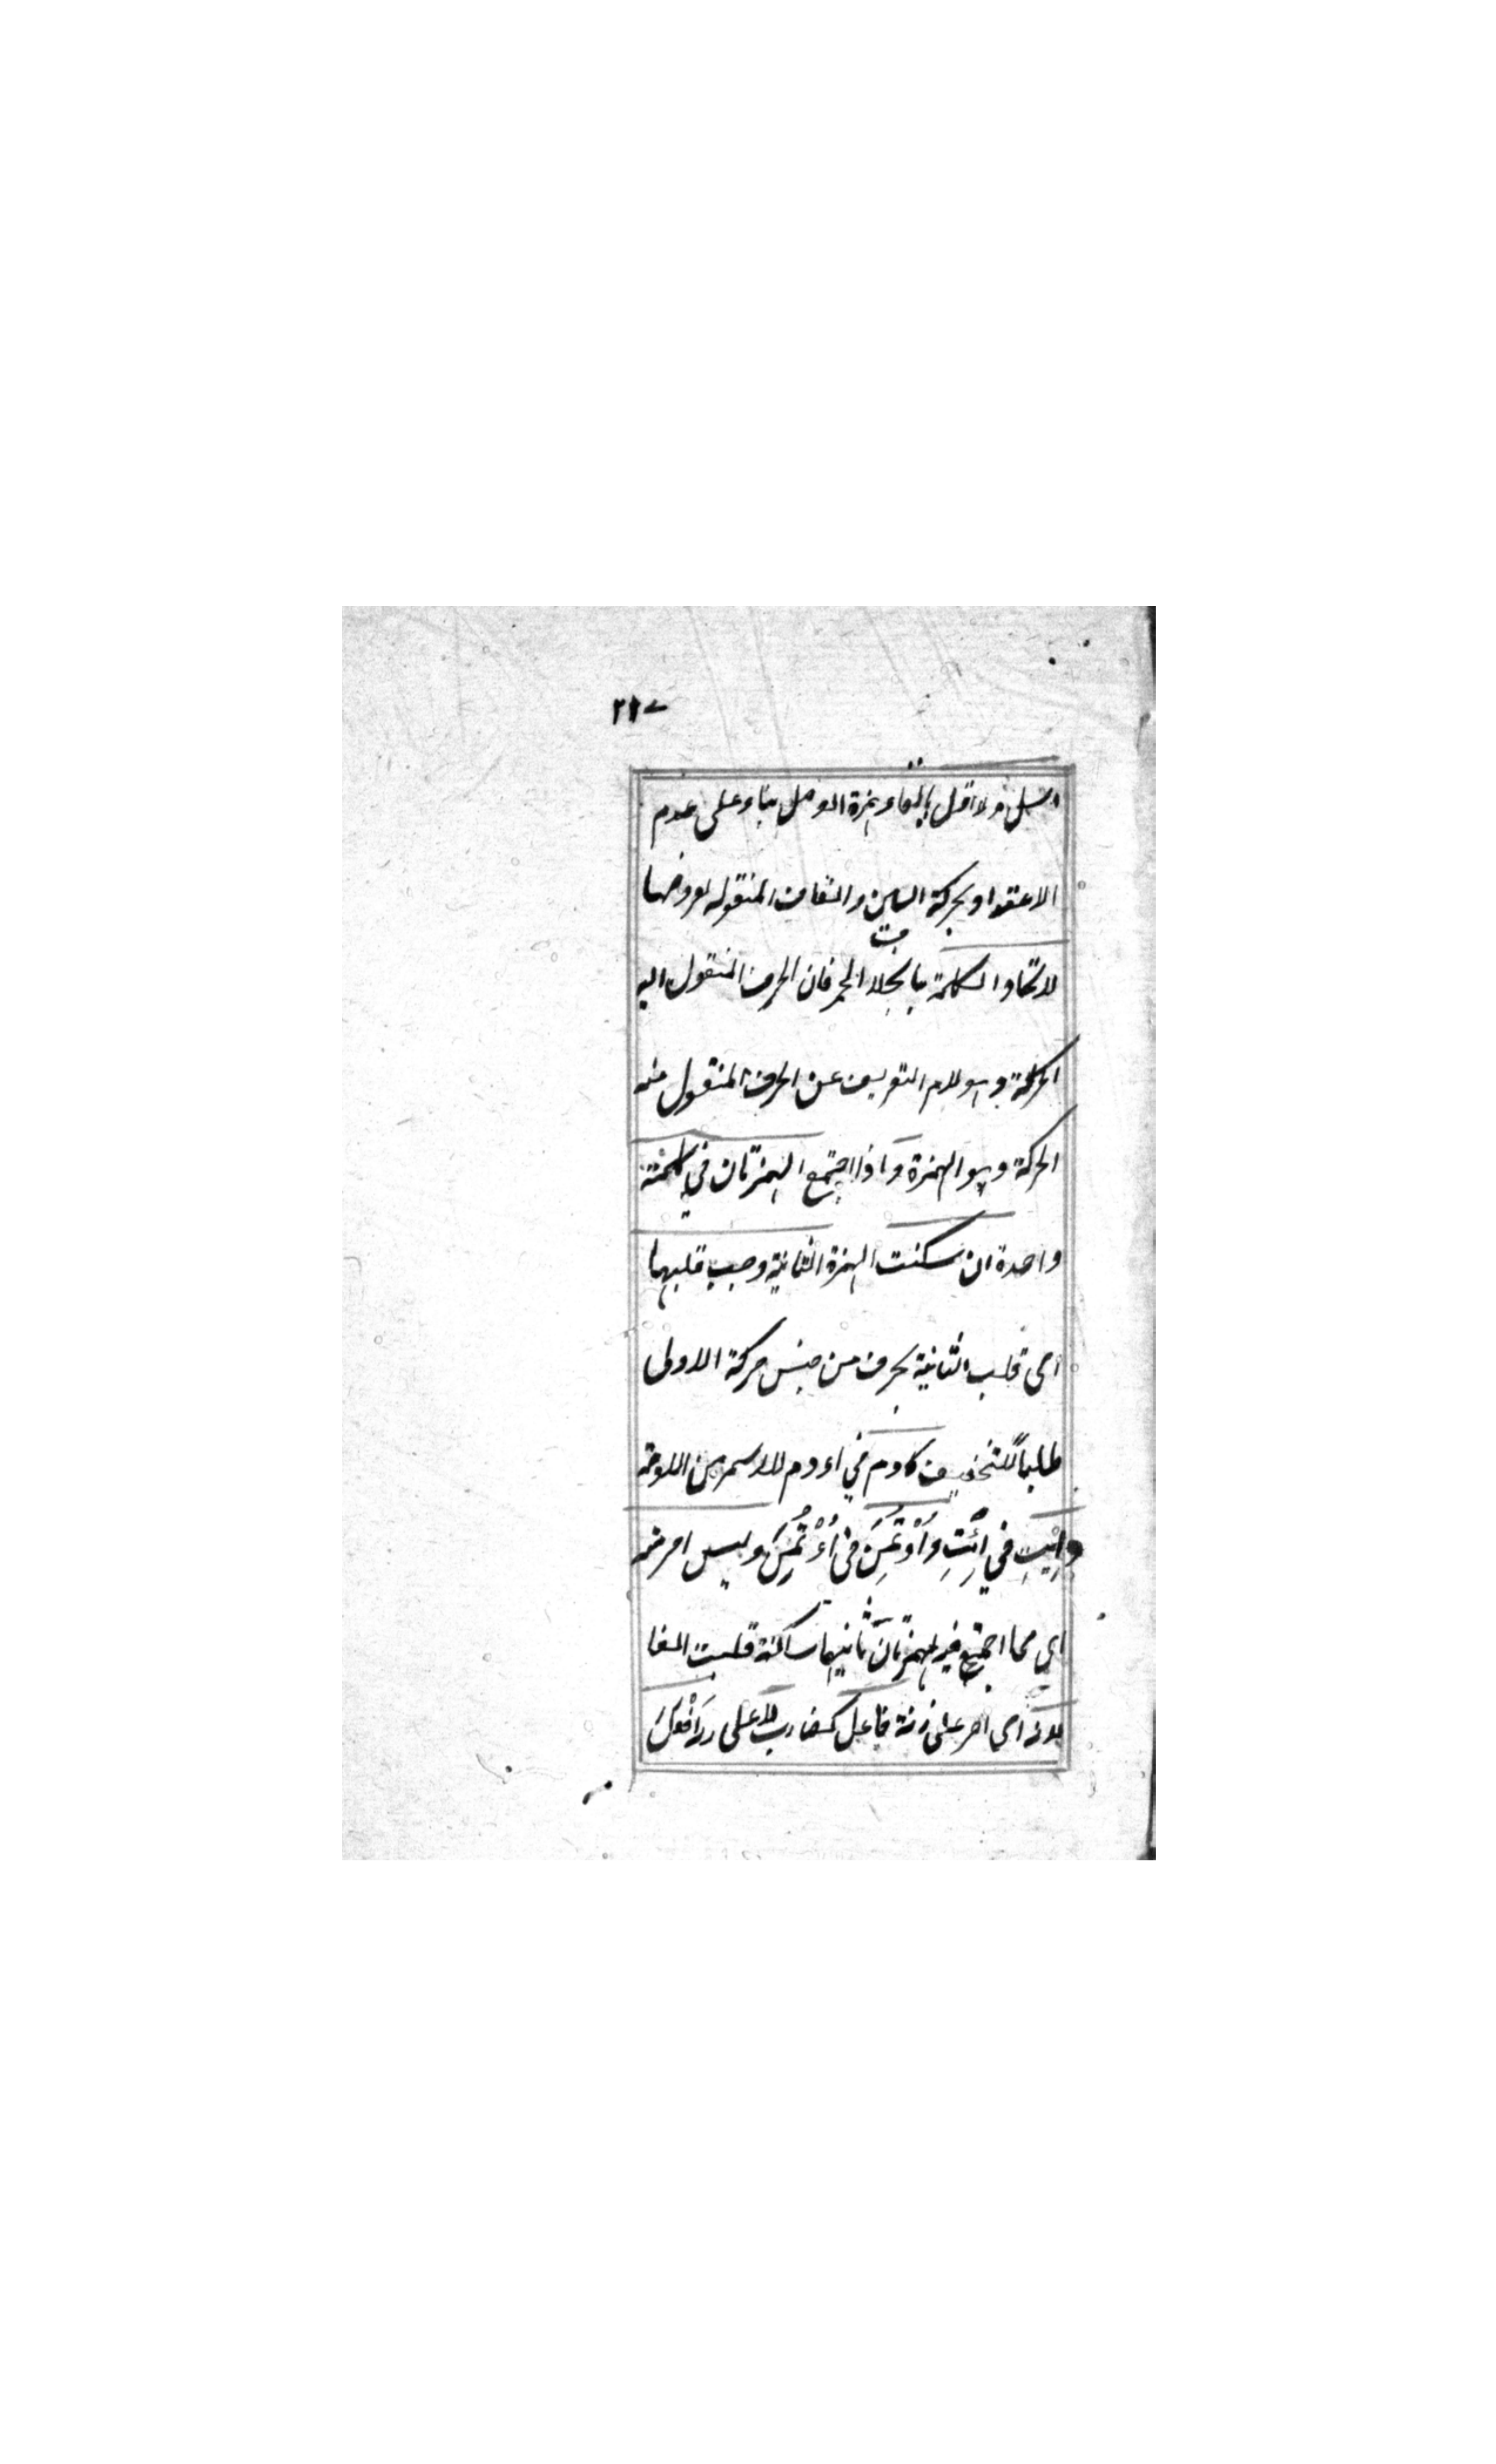 ٢٢٧
اسل ولا اقل بالقاء همزة الوصل بناء على عدم
الاعتداد بحركة السين والقاف المنقولة لعروضها
لاتحاد الكلمة بخلاف الحمر فان الحرف المنقول اليه
الحركة وهو لام التعريف عن الحرف المنقول عنه
الحركة وهو الهمزة واذا اجتمع الهمزتان في كلمة
واحدة ان سكنت الهمزة الثانية وجب قلبها
اى قلب الثانية بحرف من جنس حركة الاولى
طلبا للتخفيف كادم في اءدم للاسمر من الادمة
وايت في ائت واوتمن في اؤتمن وليس اجر منه
اي مما اجتمع فيه الهمزتان ثانيهما ساكنة قلبت الفا
لانه اي اجر على زنة فاعل كضارب لا على